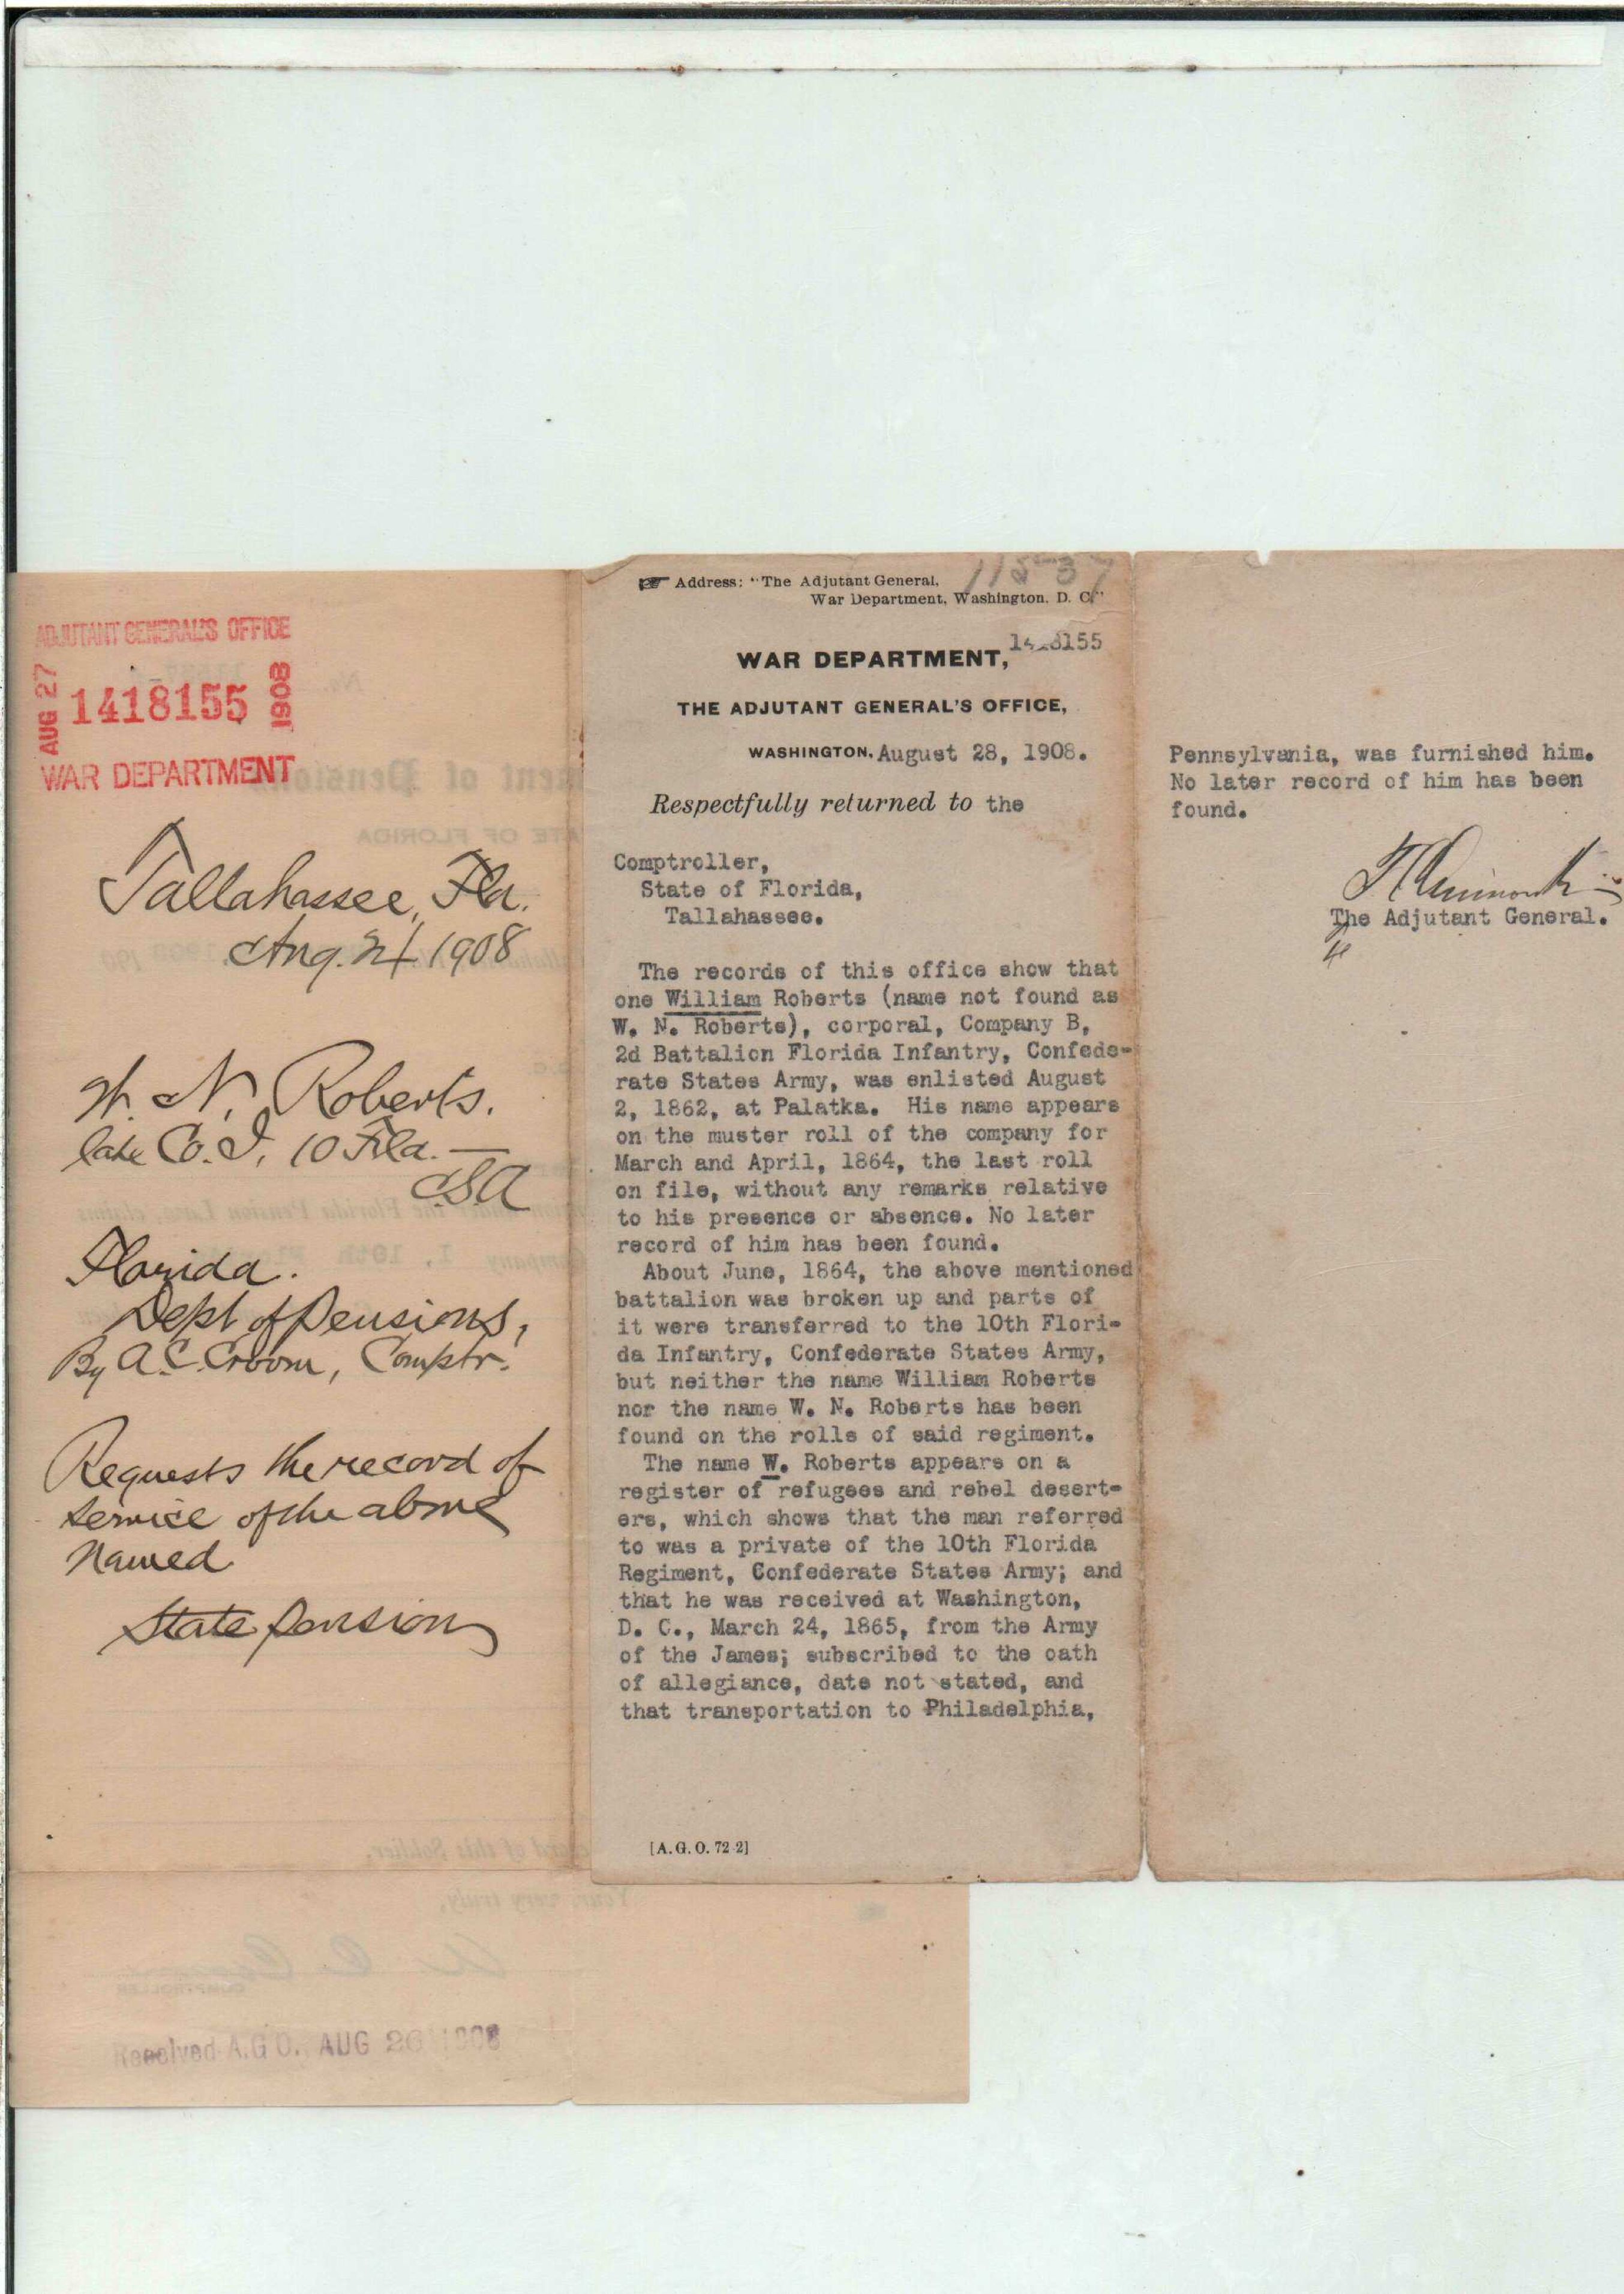 ADJUTANT GENERAL'S OFFICE
AUG 27 1418155 1908
WAR DEPARTMENT
Tallahassee, Fla.
Aug. 24 1908
W. N. Roberts.
late Co. I, 10 Fla. —
CSA
Florida.
Dept of Pensions,
By A. C. Croom, Comptr.
Requests the record of
service of the above
named
State pension
Received A.G.O. AUG 26 1908
11537
Address: "The Adjutant General,
War Department, Washington. D. C."
1418155
WAR DEPARTMENT,
THE ADJUTANT GENERAL'S OFFICE,
WASHINGTON, August 28, 1908.
Respectfully returned to the
Comptroller,
State of Florida,
Tallahassee.
The records of this office show that
one William Roberts (name not found as
W. N. Roberts), corporal, Company B,
2d Battalion Florida Infantry, Confede-
rate States Army, was enlisted August
2, 1862, at Palatka. His name appears
on the muster roll of the company for
March and April, 1864, the last roll
on file, without any remarks relative
to his presence or absence. No later
record of him has been found.
About June, 1864, the above mentioned
battalion was broken up and parts of
it were transferred to the 10th Flori-
da Infantry, Confederate States Army,
but neither the name William Roberts
nor the name W. N. Roberts has been
found on the rolls of said regiment.
The name W. Roberts appears on a
register of refugees and rebel desert-
ers, which shows that the man referred
to was a private of the 10th Florida
Regiment, Confederate States Army; and
that he was received at Washington,
D. C., March 24, 1865, from the Army
of the James; subscribed to the oath
of allegiance, date not stated, and
that transportation to Philadelphia,
[A. G. O. 72-2]
Pennsylvania, was furnished him.
No later record of him has been
found.
The Adjutant General.